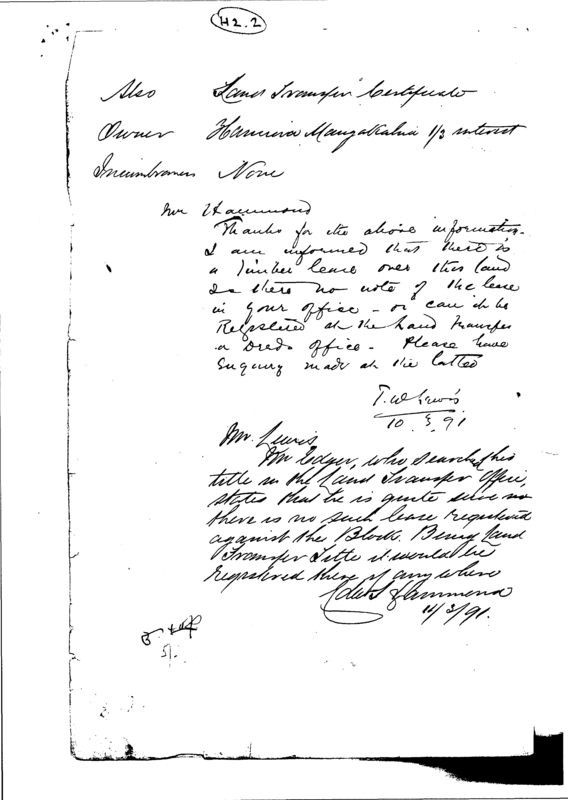 H2.2
Also Land Transfer Certificate
Owner Mangakahia 1/3 interest
Incumbrances None
Mr Hammond
Thanks for the above information.
I am informed that there is
a Timber lease over this land
Is there no note of the lease
in your office - or can it be
Registered at the Land Transfer
or Deeds office - Please have
Enquiry made at the latter
T.W. Lewis
10.3.91
Mr. Lewis
Mr Edger, who searched this
title in the Land Transfer Office,
states that he is quite sure
there is no such lease registered
against the Block. Being Land
Transfer Title it would be
registered there if anywhere
Hammond
11/3/91.
5/-